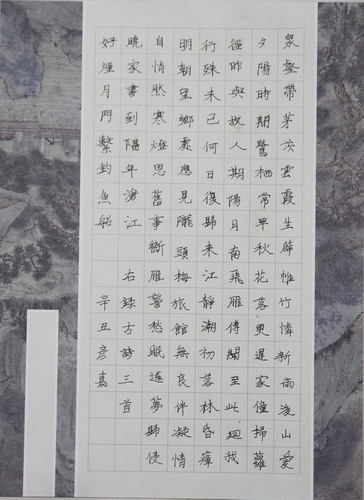 泉壑帶茅茨雲霞生薜帷竹憐新雨後山愛
夕陽時閒鷺栖常早秋花落更遲家僮掃蘿
徑昨與故人期陽月南飛雁傳聞至此迴我
行殊未已何日復歸来江靜潮初落林昏瘴
明朝望鄉處應見隴頭梅旅館無良伴凝情
自情然寒燈思舊事斷雁警愁眠遠夢歸侵
曉家書到隔年滄江
好煙月門繫釣魚船
右錄古詩三首
辛丑彥嘉